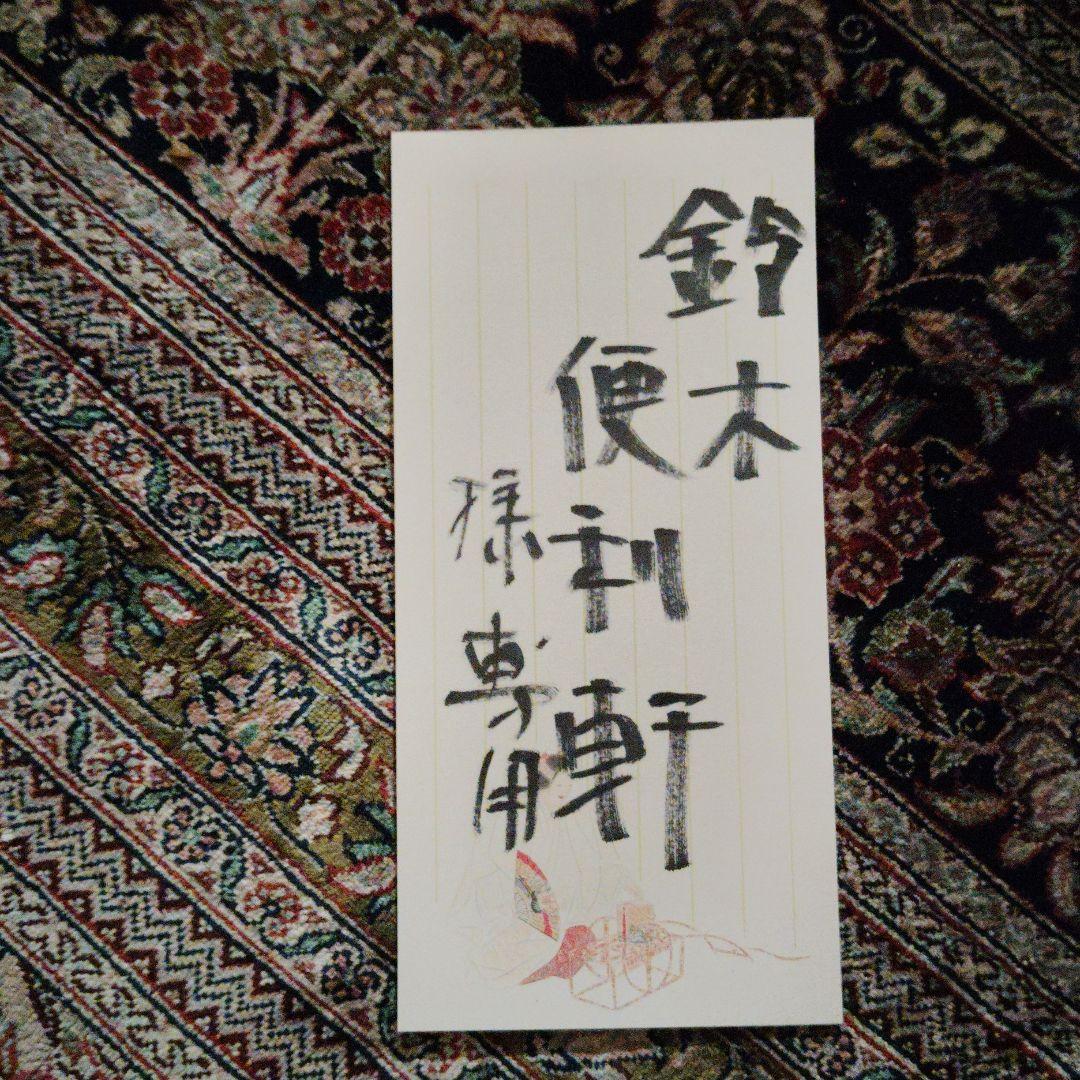 鈴木
便利軒
様専用